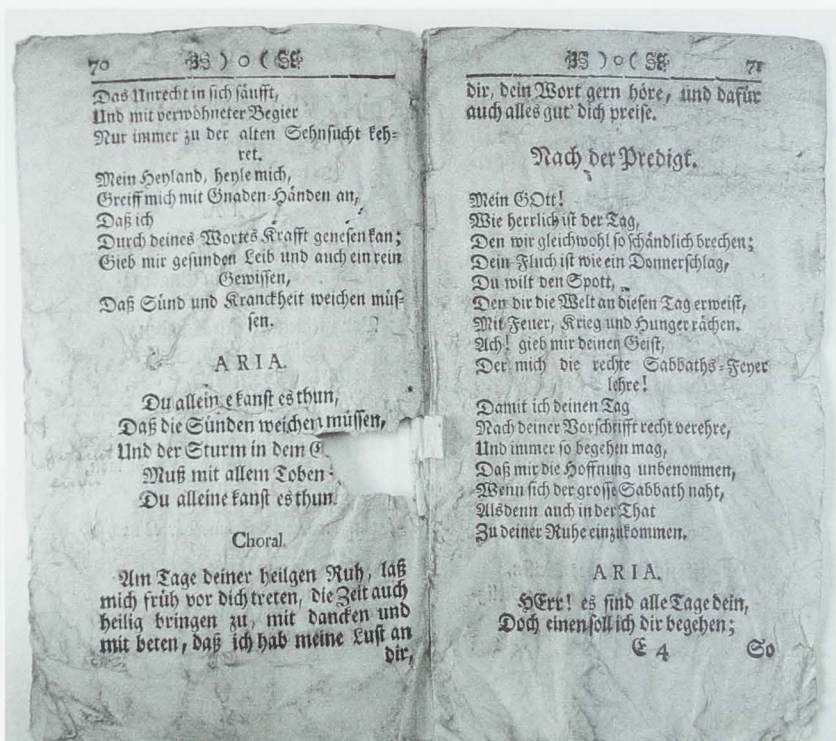 70 ) o (
Das Unrecht in sich säufft,
Und mit verwöhneter Begier
Nur immer zu der alten Sehnsucht keh=
ret.
Mein Heyland, heyle mich,
Greiff mich mit Gnaden=Händen an,
Daß ich
Durch deines Wortes Krafft genesen kan;
Gieb mir gesunden Leib und auch ein rein
Gewissen,
Daß Sünd und Kranckheit weichen müs=
sen.
ARIA.
Du alleine kanst es thun,
Daß die Sünden weichen müssen,
Und der Sturm in dem
Muß mit allem Toben
Du alleine kanst es thun.
Choral.
Am Tage deiner heilgen Ruh, laß
mich früh vor dich treten, die Zeit auch
heilig bringen zu, mit dancken und
mit beten, daß ich hab meine Lust an
dir,
) o ( 71
dir, dein Wort gern höre, und dafür
auch alles gut' dich preise.
Nach der Predigt.
Mein GOtt!
Wie herrlich ist der Tag,
Den wir gleichwohl so schändlich brechen;
Dein Fluch ist wie ein Donnerschlag,
Du wilt den Spott,
Den dir die Welt an diesen Tag erweist,
Mit Feuer, Krieg und Hunger rächen.
Ach! gieb mir deinen Geist,
Der mich die rechte Sabbaths=Feyer
lehre!
Damit ich deinen Tag
Nach deiner Vorschrifft recht verehre,
Und immer so begehen mag,
Daß mir die Hoffnung unbenommen,
Wenn sich der grosse Sabbath naht,
Alsdenn auch in der That
Zu deiner Ruhe einzukommen.
ARIA.
HErr! es sind alle Tage dein,
Doch einen soll ich dir begehen;
E 4 So